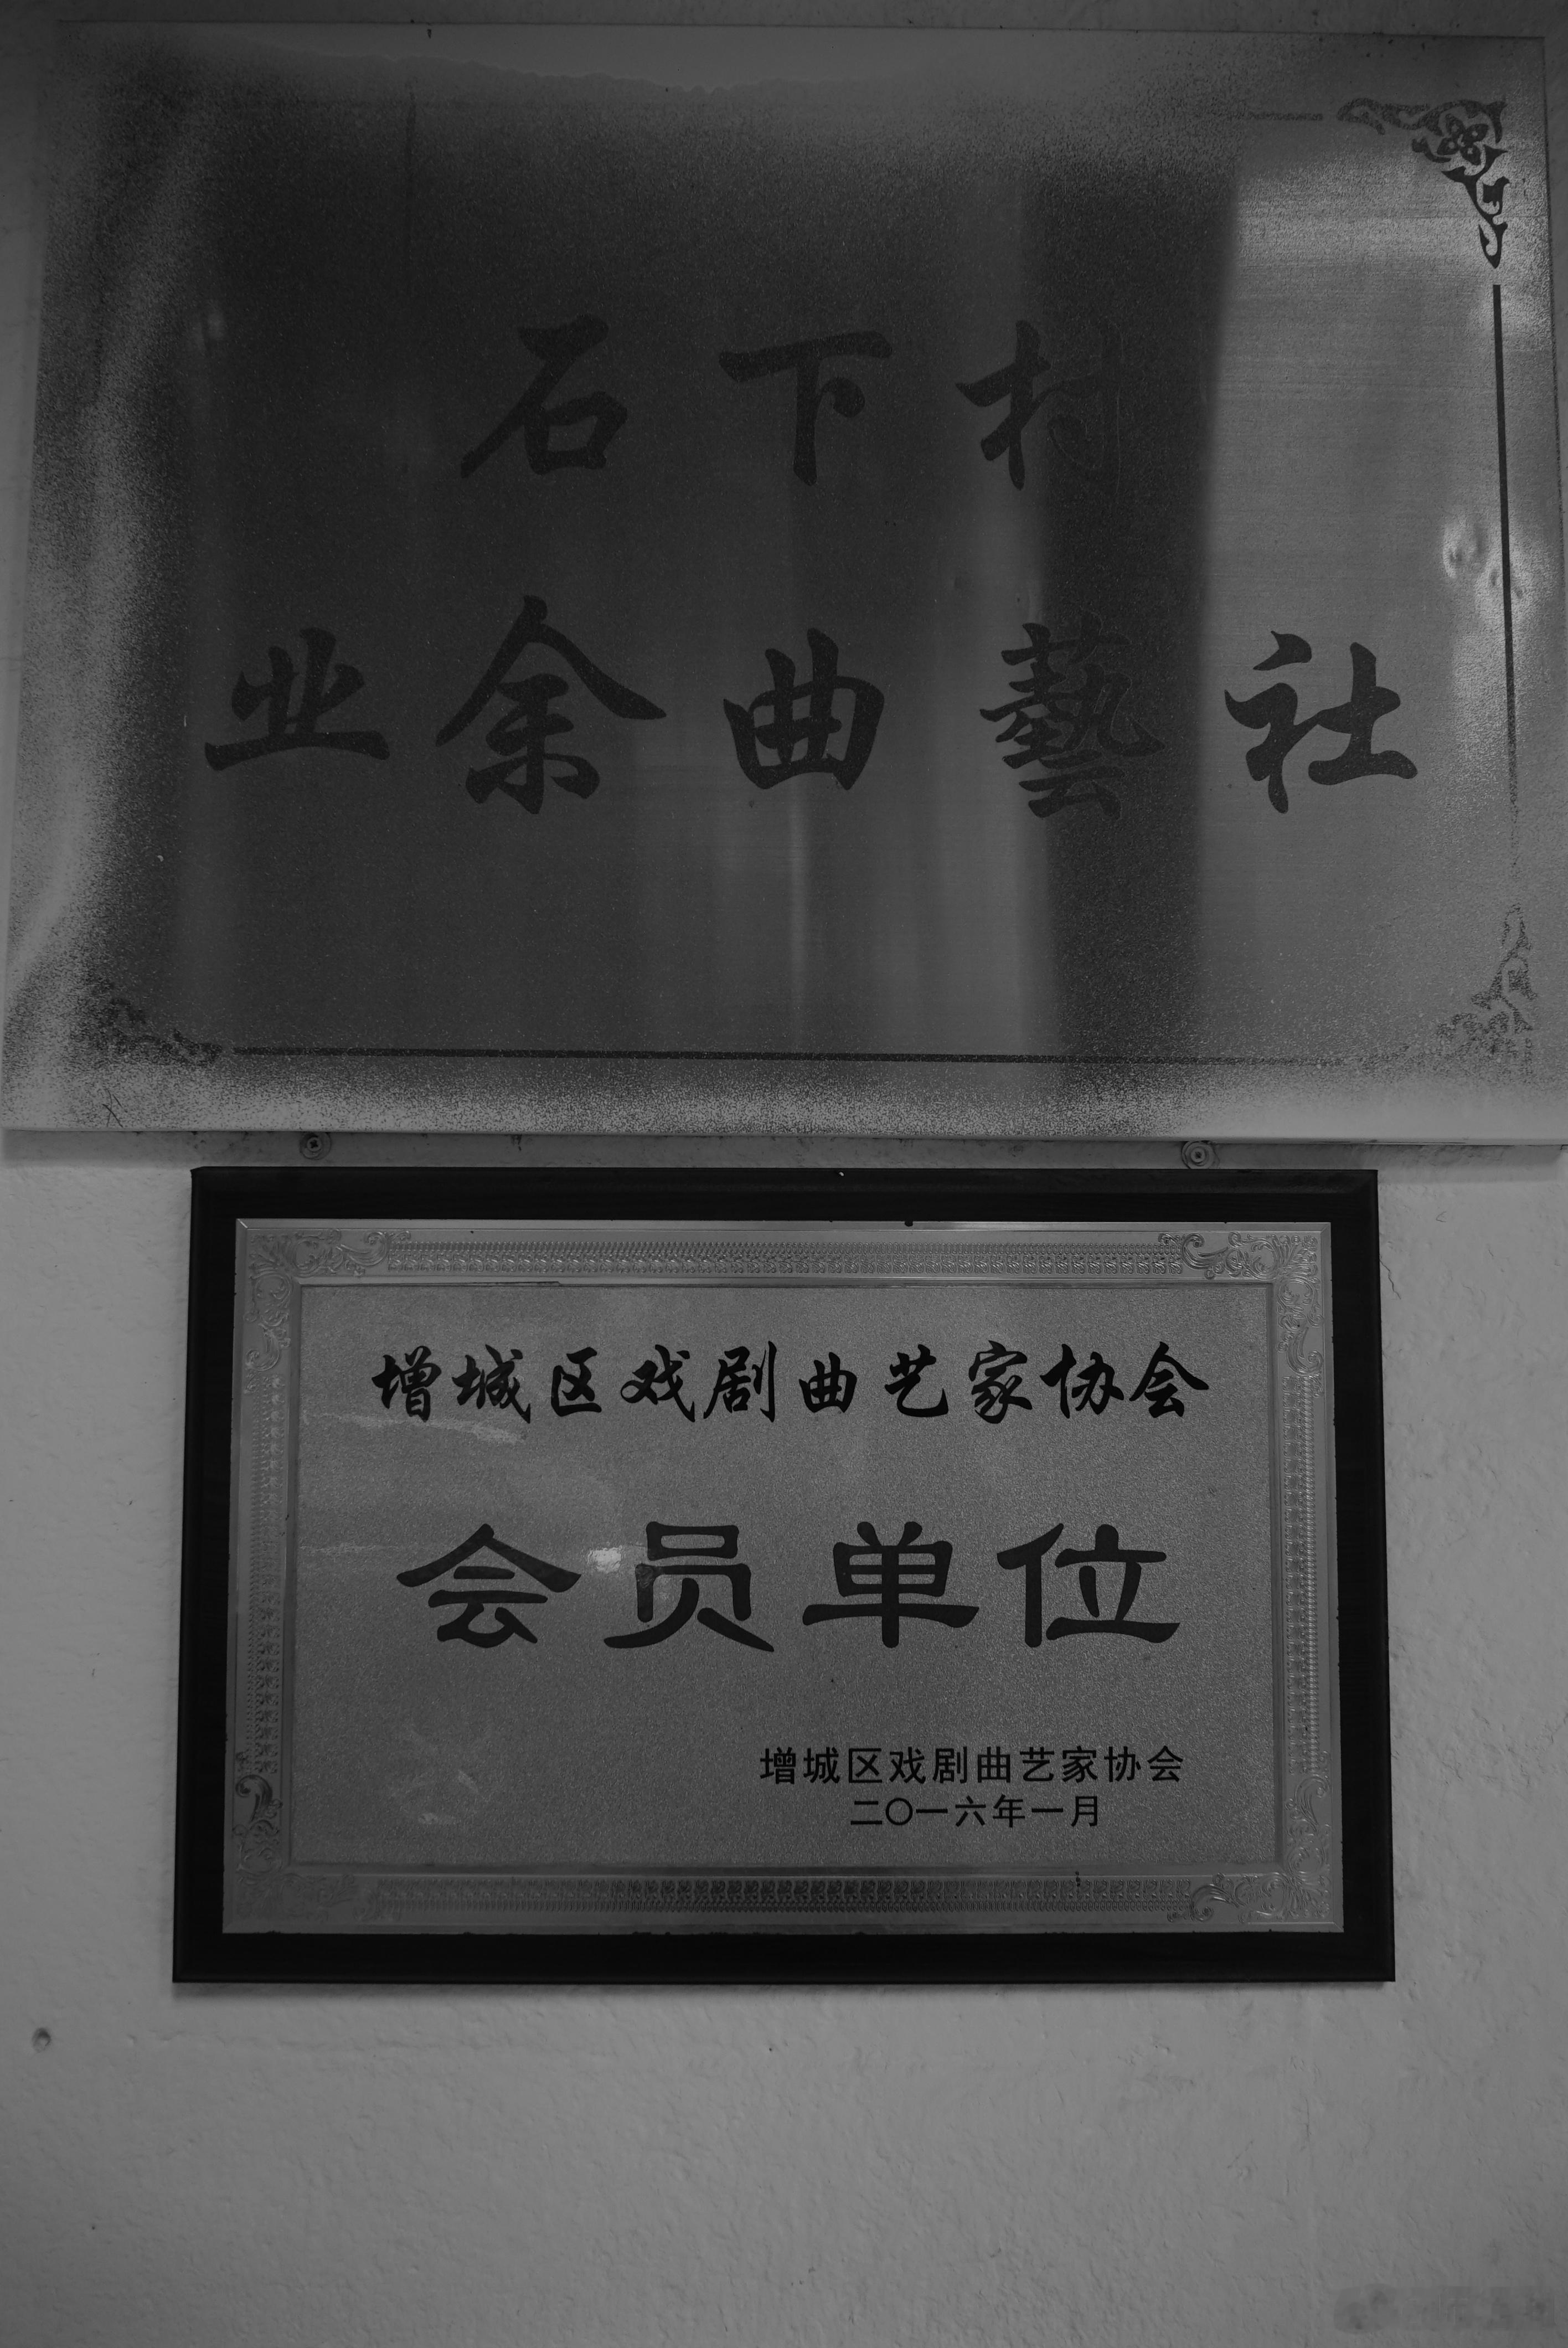 石下村
业余曲藝社
增城区戏剧曲艺家协会
会员单位
增城区戏剧曲艺家协会
二〇一六年一月